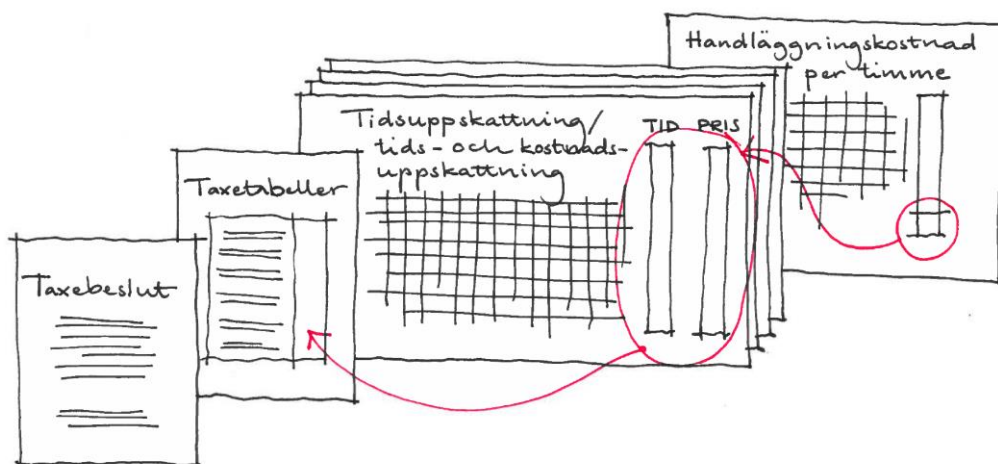 Taxebeslut
Taxetabeller
Tidsuppskattning/
tids- och kostnads-
uppskattning
TID PRIS
Handläggningskostnad
per timme